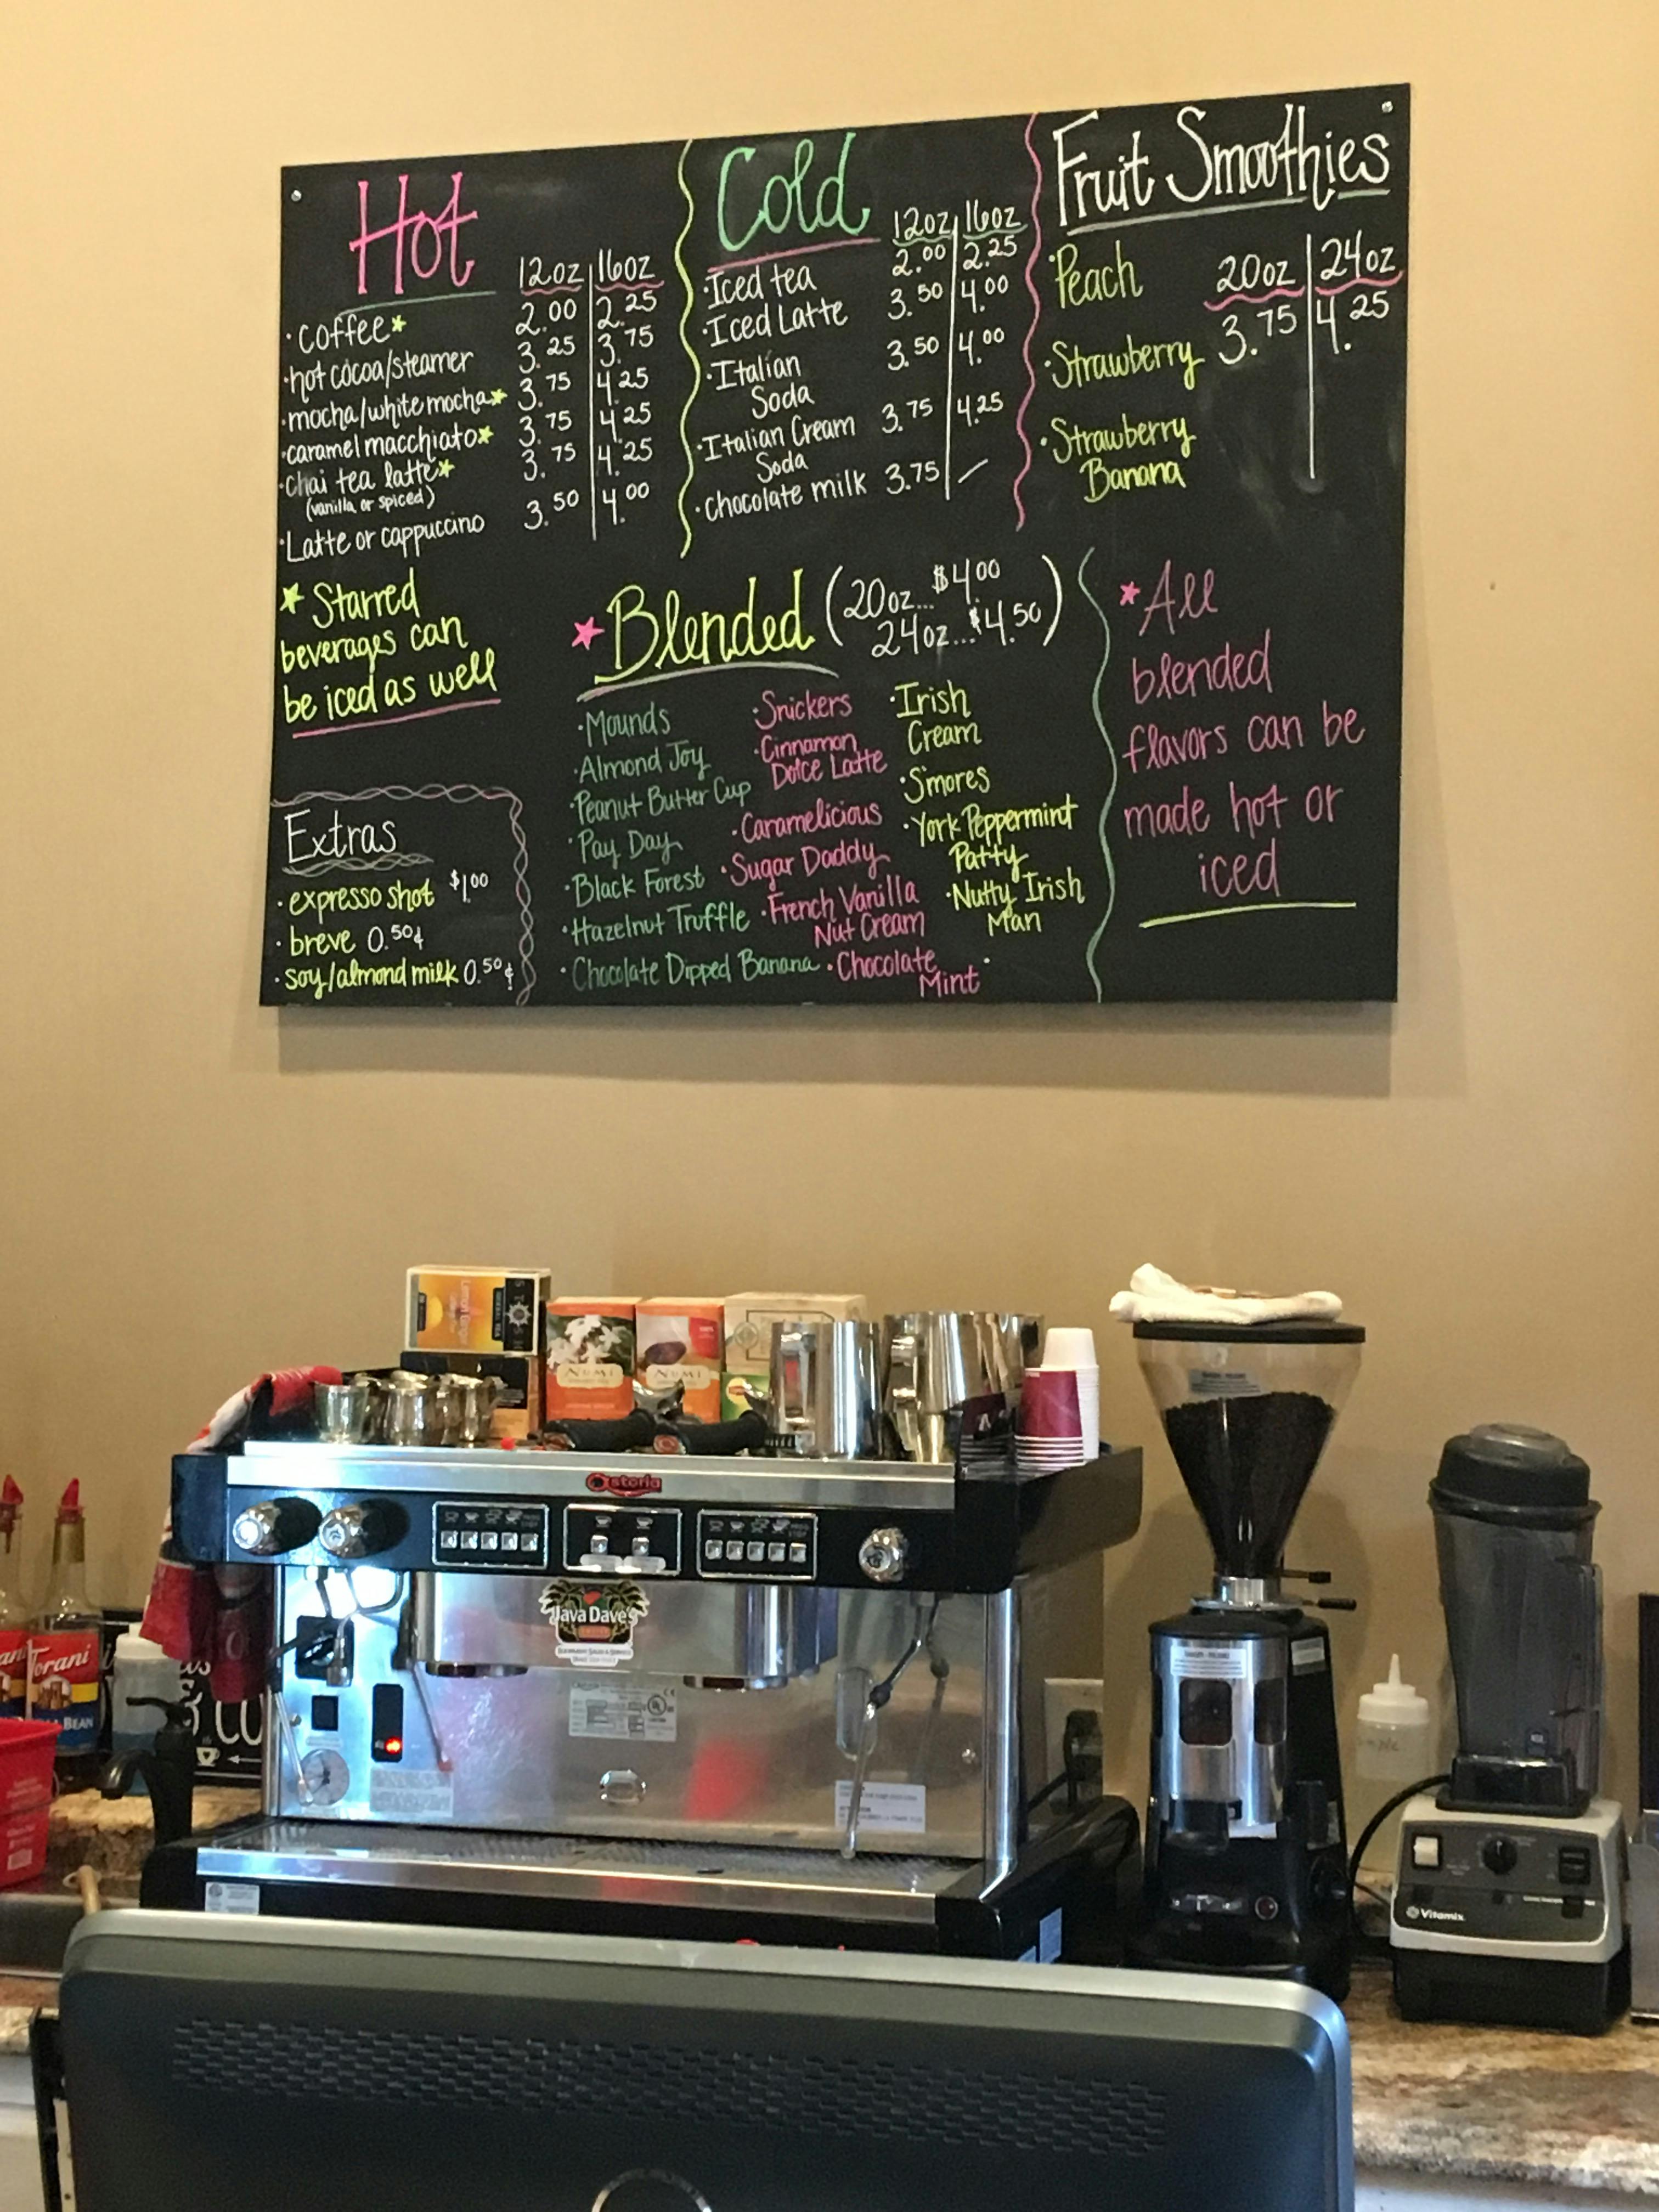 Hot
12oz 16oz
· coffee★ 2.00 2.25
· hot cocoa/steamer 3.25 3.75
· mocha/white mocha★ 3.75 4.25
· caramel macchiato★ 3.75 4.25
· chai tea latte★ 3.75 4.25
(vanilla or spiced)
· Latte or cappuccino 3.50 4.00
★ Starred
beverages can
be iced as well
Extras
· expresso shot $1.00
· breve 0.50¢
· soy/almond milk 0.50¢
Cold
12oz 16oz
· Iced tea 2.00 2.25
· Iced Latte 3.50 4.00
· Italian 3.50 4.00
Soda
· Italian Cream 3.75 4.25
Soda
· chocolate milk 3.75 –
Fruit Smoothies
20oz 24oz
· Peach 3.75 4.25
· Strawberry
· Strawberry
Banana
★ Blended (20oz... $4.00
24oz... $4.50)
· Mounds
· Almond Joy
· Peanut Butter Cup
· Pay Day
· Black Forest
· Hazelnut Truffle
· Chocolate Dipped Banana
· Snickers
· Cinnamon
Dolce Latte
· Caramelicious
· Sugar Daddy
· French Vanilla
Nut Cream
· Chocolate
Mint
· Irish
Cream
· S'mores
· York Peppermint
Patty
· Nutty Irish
Man
★ All
blended
flavors can be
made hot or
iced
Lemon Ginger
NUMI
NUMI
Astoria
Java Dave's
Torani
BEAN
Vitamix